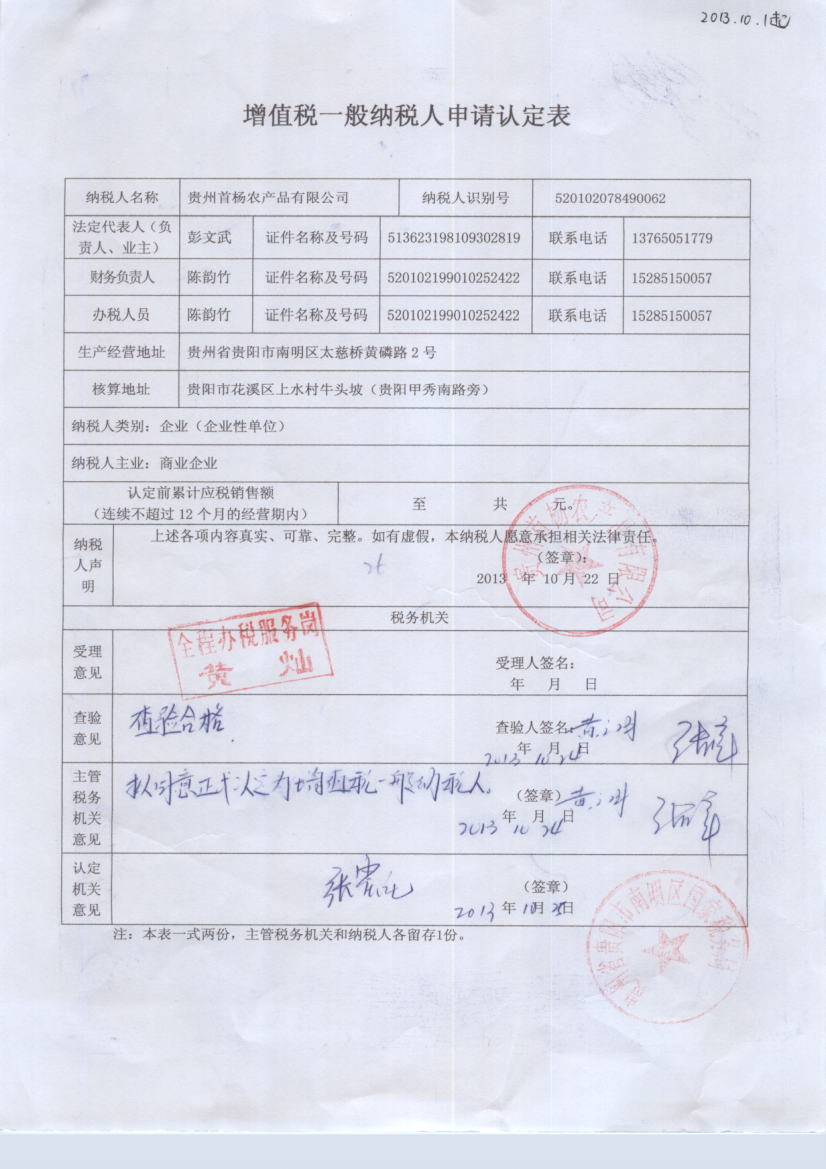 2013.10.1起
增值税一般纳税人申请认定表
纳税人名称 贵州首杨农产品有限公司 纳税人识别号 520102078490062
法定代表人（负责人、业主） 彭文武 证件名称及号码 513623198109302819 联系电话 13765051779
财务负责人 陈韵竹 证件名称及号码 520102199010252422 联系电话 15285150057
办税人员 陈韵竹 证件名称及号码 520102199010252422 联系电话 15285150057
生产经营地址 贵州省贵阳市南明区太慈桥黄磷路2号
核算地址 贵阳市花溪区上水村牛头坡（贵阳甲秀南路旁）
纳税人类别：企业（企业性单位）
纳税人主业：商业企业
认定前累计应税销售额
（连续不超过12个月的经营期内） 至 共 元。
纳税人声明
上述各项内容真实、可靠、完整。如有虚假，本纳税人愿意承担相关法律责任。
（签章）：
2013 年 10 月 22 日
贵州首杨农产品有限公司
税务机关
全程办税服务岗
黄 灿
受理意见
受理人签名：
年 月 日
查验意见
查验合格
查验人签名：
2013年10月24日
主管税务机关意见
拟同意正式认定为增值税一般纳税人。
（签章）
2013年10月24日
认定机关意见
（签章）
2013年10月25日
贵州省贵阳市南明区国家税务局
注：本表一式两份，主管税务机关和纳税人各留存1份。